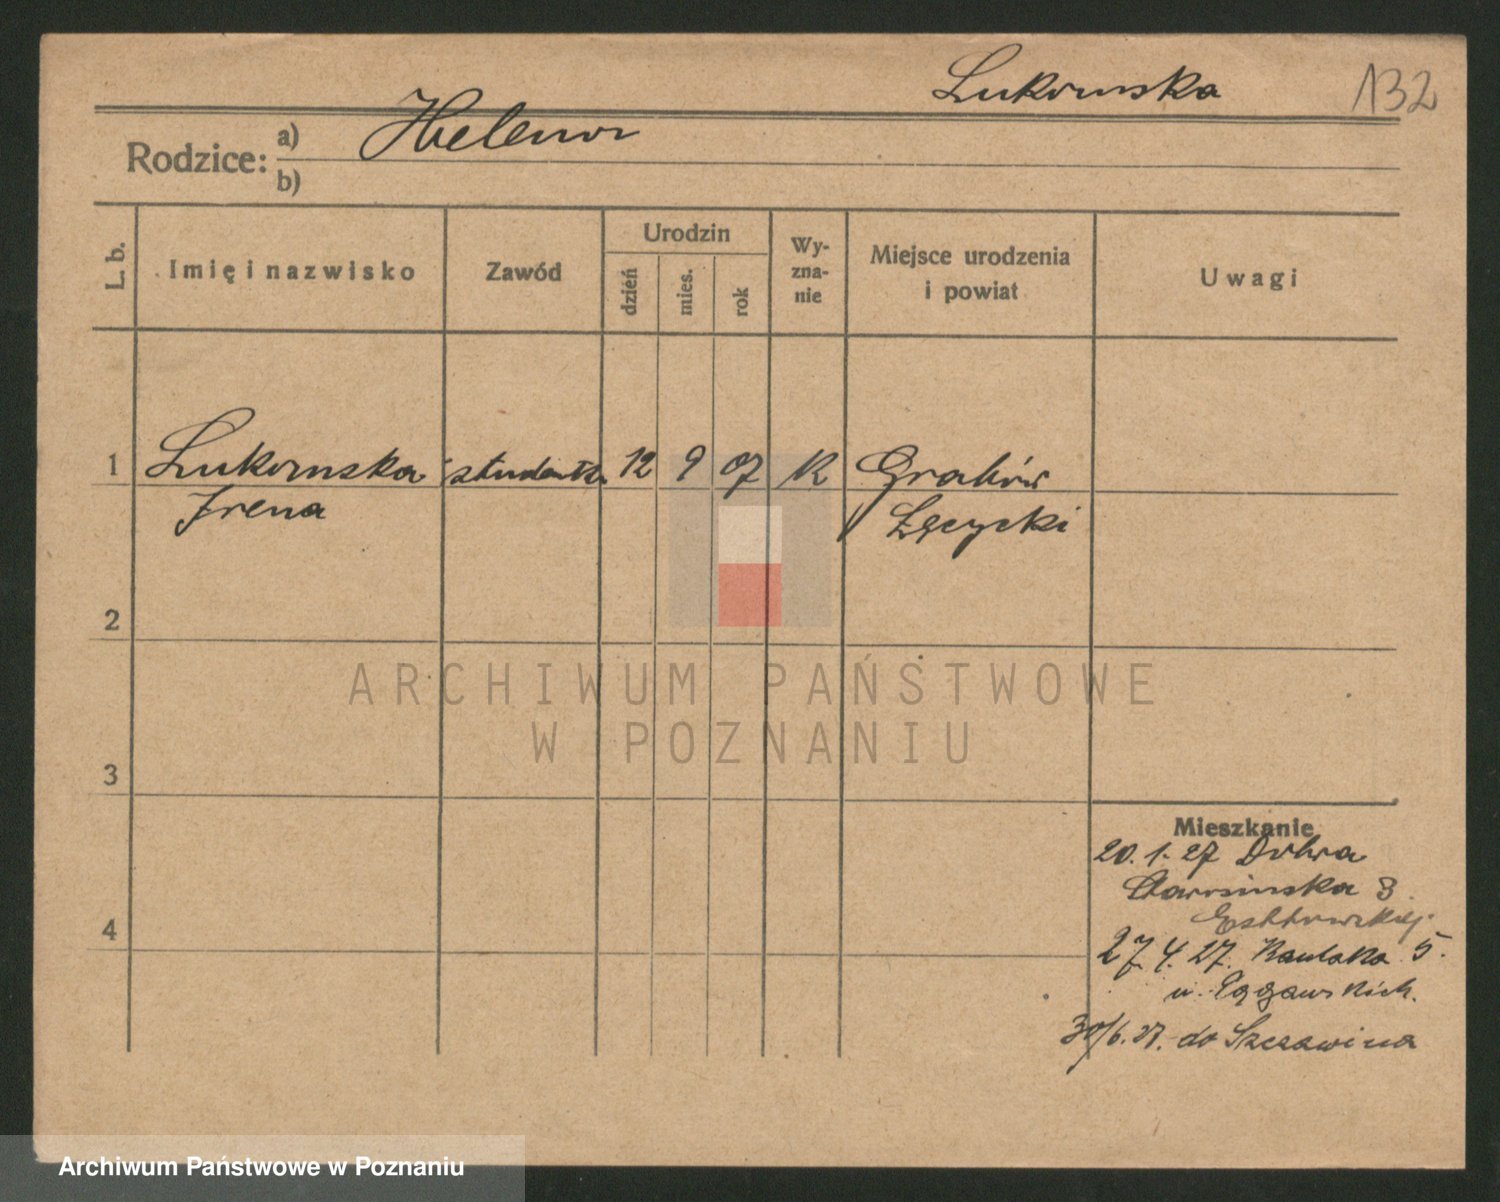 Lukomska
132
Rodzice: a) Helena
b)
L. b.
Imię i nazwisko
Zawód
Urodzin
dzień
mies.
rok
Wy-
zna-
nie
Miejsce urodzenia
i powiat
Uwagi
1 Lukomska studentka 12 9 07 K Graków
Irena Łęcycki
2
ARCHIWUM PAŃSTWOWE
W POZNANIU
3
Mieszkanie
20. 1. 27 Dobra
3
4
27. 4. 27. 5.
u.
30/6. 27. do Szczawina
Archiwum Państwowe w Poznaniu